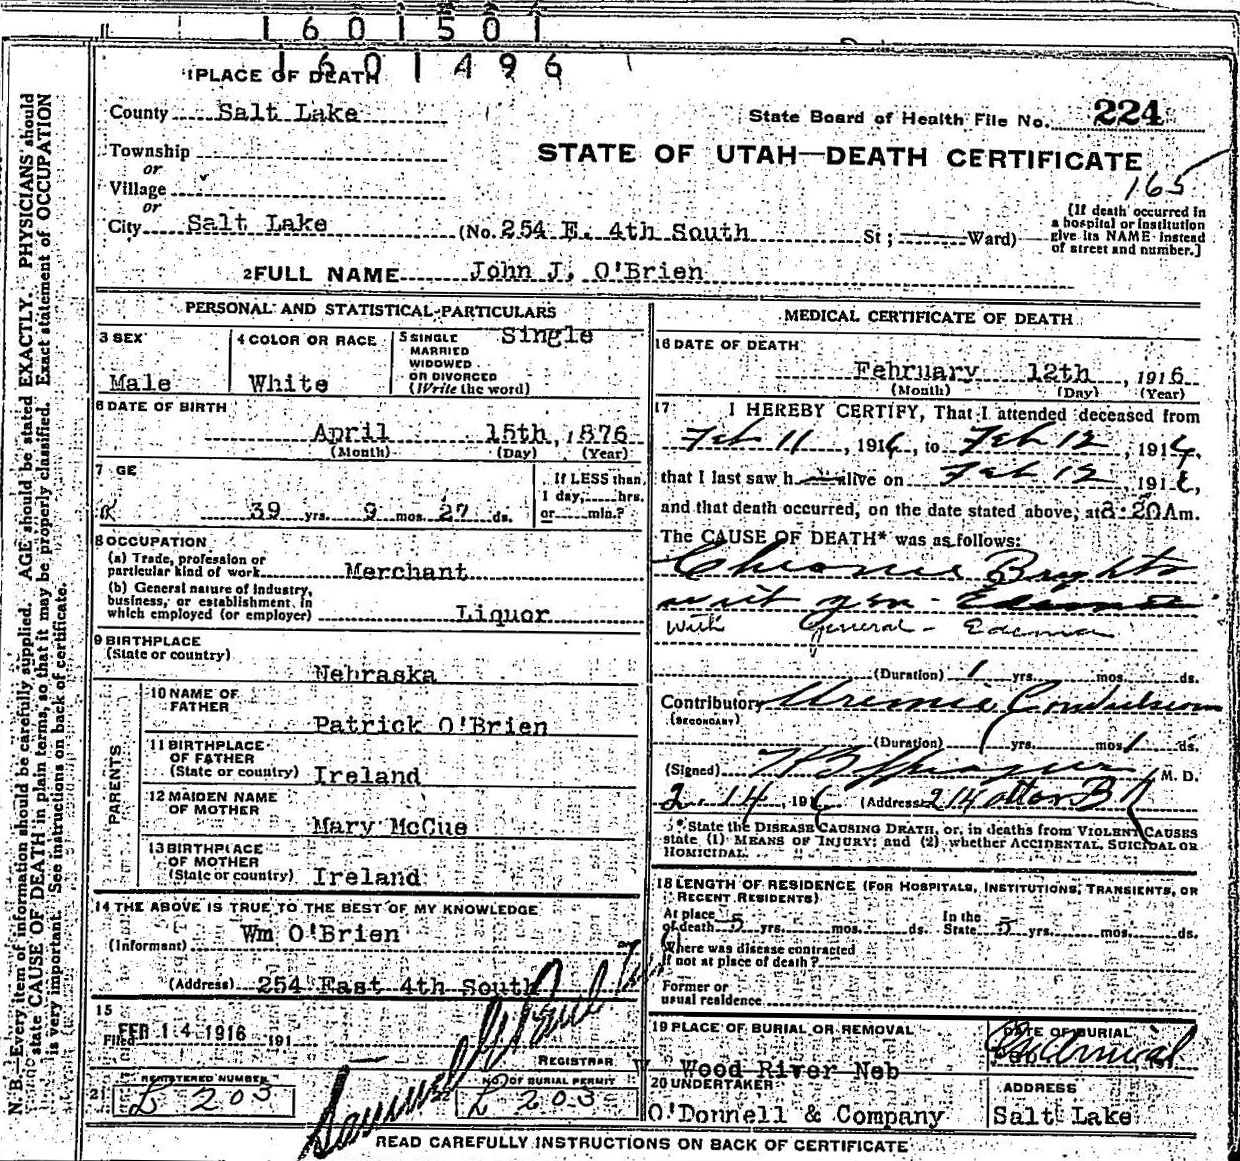 1601501
1601496
1 PLACE OF DEATH
County Salt Lake
State Board of Health File No. 224
Township
or
Village
or
STATE OF UTAH—DEATH CERTIFICATE
165
City Salt Lake (No. 254 E. 4th South St; Ward)
[If death occurred in
a hospital or institution
give its NAME instead
of street and number.]
2 FULL NAME John J. O'Brien
PERSONAL AND STATISTICAL PARTICULARS
3 SEX
Male
4 COLOR OR RACE
White
5 SINGLE
MARRIED
WIDOWED
OR DIVORCED
(Write the word)
Single
6 DATE OF BIRTH
April 15th, 1876
(Month) (Day) (Year)
7 GE
39 yrs. 9 mos. 27 ds.
If LESS than
1 day, hrs.
or min.?
8 OCCUPATION
(a) Trade, profession or
particular kind of work Merchant
(b) General nature of industry,
business, or establishment in
which employed (or employer) Liquor
9 BIRTHPLACE
(State or country)
Nebraska
PARENTS
10 NAME OF
FATHER
Patrick O'Brien
11 BIRTHPLACE
OF FATHER
(State or country) Ireland
12 MAIDEN NAME
OF MOTHER
Mary McCue
13 BIRTHPLACE
OF MOTHER
(State or country) Ireland
14 THE ABOVE IS TRUE TO THE BEST OF MY KNOWLEDGE
(Informant) Wm O'Brien
(Address) 254 East 4th South
15
Filed FEB 14 1916 191
REGISTRAR
21 REGISTERED NUMBER
L 203
NO. OF BURIAL PERMIT
L 203
MEDICAL CERTIFICATE OF DEATH
16 DATE OF DEATH
February 12th, 1916
(Month) (Day) (Year)
17 I HEREBY CERTIFY, That I attended deceased from
Feb 11, 1916, to Feb 12, 1916,
that I last saw h alive on Feb 12 1916,
and that death occurred, on the date stated above, at 3:20 Am.
The CAUSE OF DEATH* was as follows:
Chronic Brights
with gen- Edema
with general - Edema
(Duration) 1 yrs. mos. ds.
Contributory Uremic Convulsions
(SECONDARY)
(Duration) yrs. mos. 1 ds.
(Signed) M. D.
2-14, 1916 (Address) 214
* State the DISEASE CAUSING DEATH, or, in deaths from VIOLENT CAUSES
state (1) MEANS OF INJURY; and (2) whether ACCIDENTAL, SUICIDAL OR
HOMICIDAL.
18 LENGTH OF RESIDENCE (FOR HOSPITALS, INSTITUTIONS, TRANSIENTS, OR
RECENT RESIDENTS)
At place
of death 5 yrs. mos. ds.
In the
State 5 yrs. mos. ds.
Where was disease contracted
if not at place of death?
Former or
usual residence
19 PLACE OF BURIAL OR REMOVAL
Wood River Neb
DATE OF BURIAL
On Arrival
20 UNDERTAKER
O'Donnell & Company
ADDRESS
Salt Lake
READ CAREFULLY INSTRUCTIONS ON BACK OF CERTIFICATE
N. B.—Every item of information should be carefully supplied. AGE should be stated EXACTLY. PHYSICIANS should
state CAUSE OF DEATH in plain terms, so that it may be properly classified. Exact statement of OCCUPATION
is very important. See instructions on back of certificate.